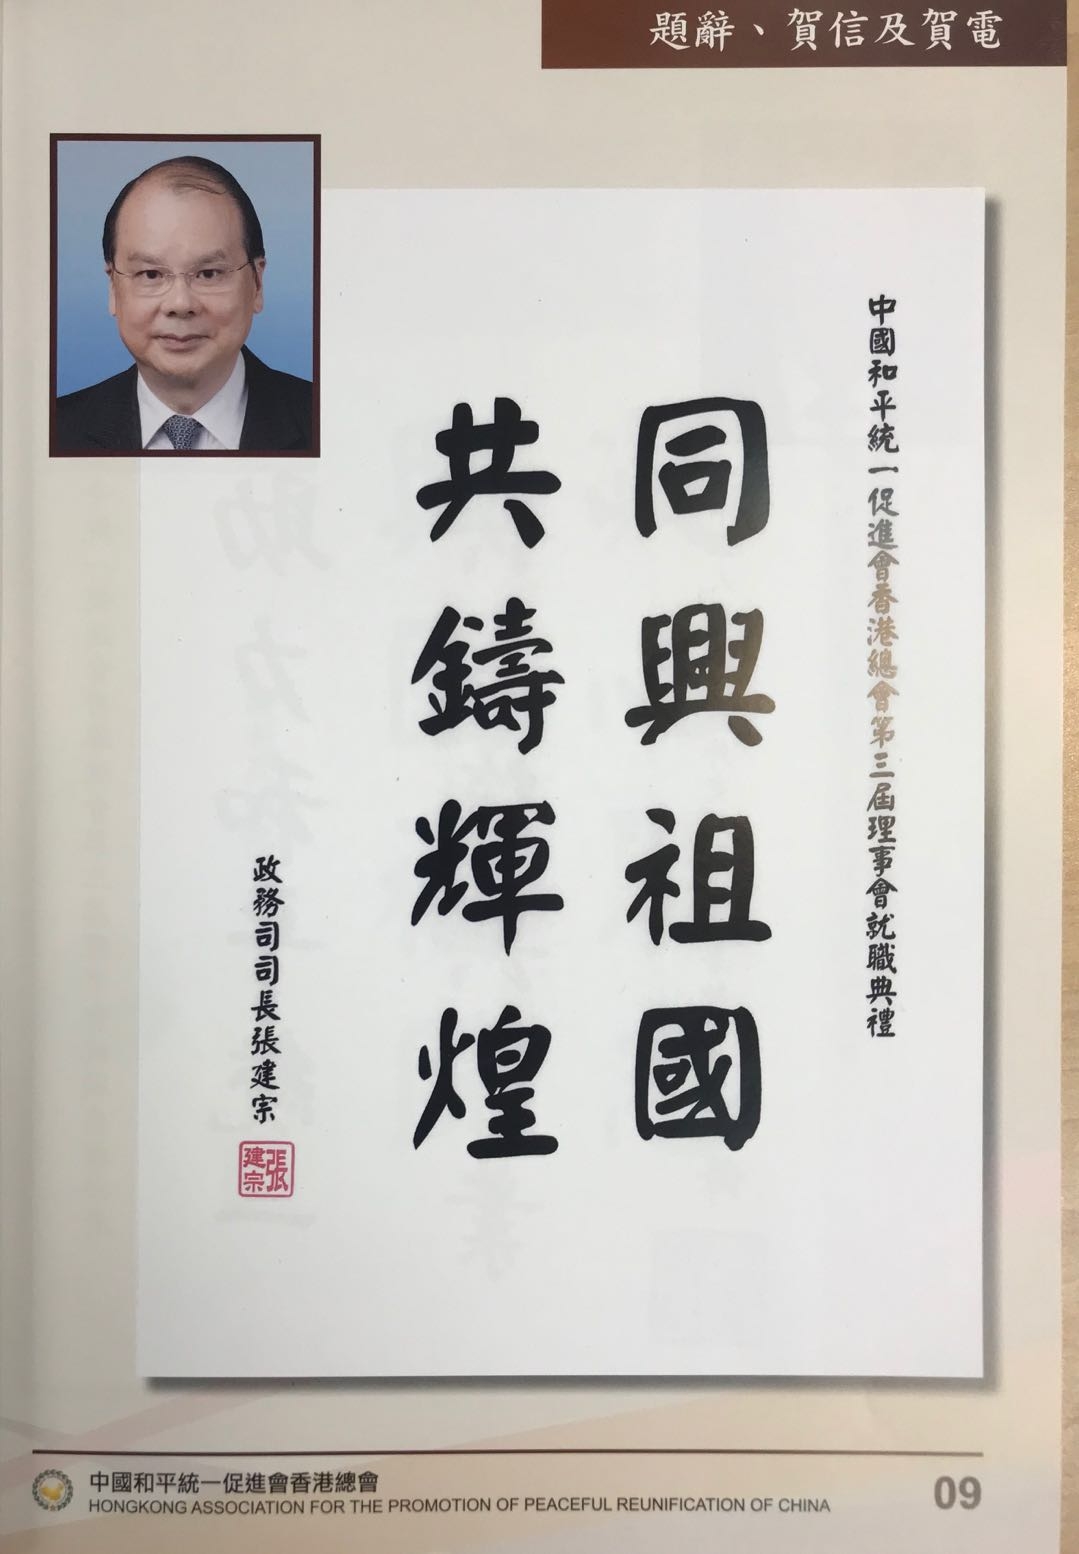 題辭、賀信及賀電
中國和平統一促進會香港總會第三屆理事會就職典禮
同興祖國
共鑄輝煌
政務司司長張建宗
張建宗
中國和平統一促進會香港總會
HONGKONG ASSOCIATION FOR THE PROMOTION OF PEACEFUL REUNIFICATION OF CHINA
09